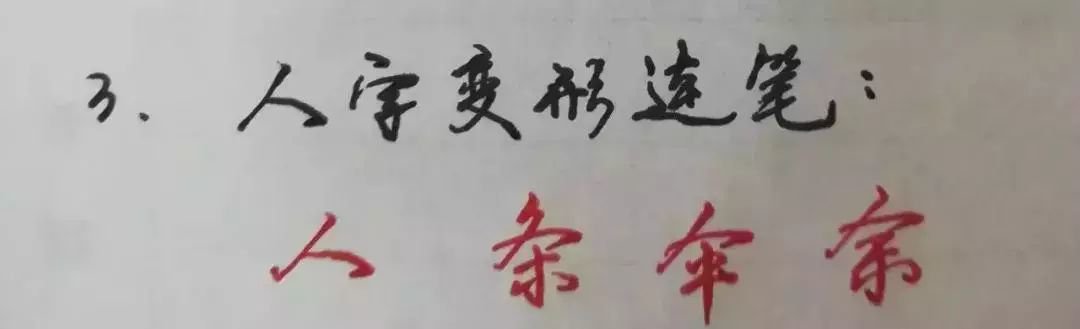 3、人字变形连笔：
人 条 伞 余